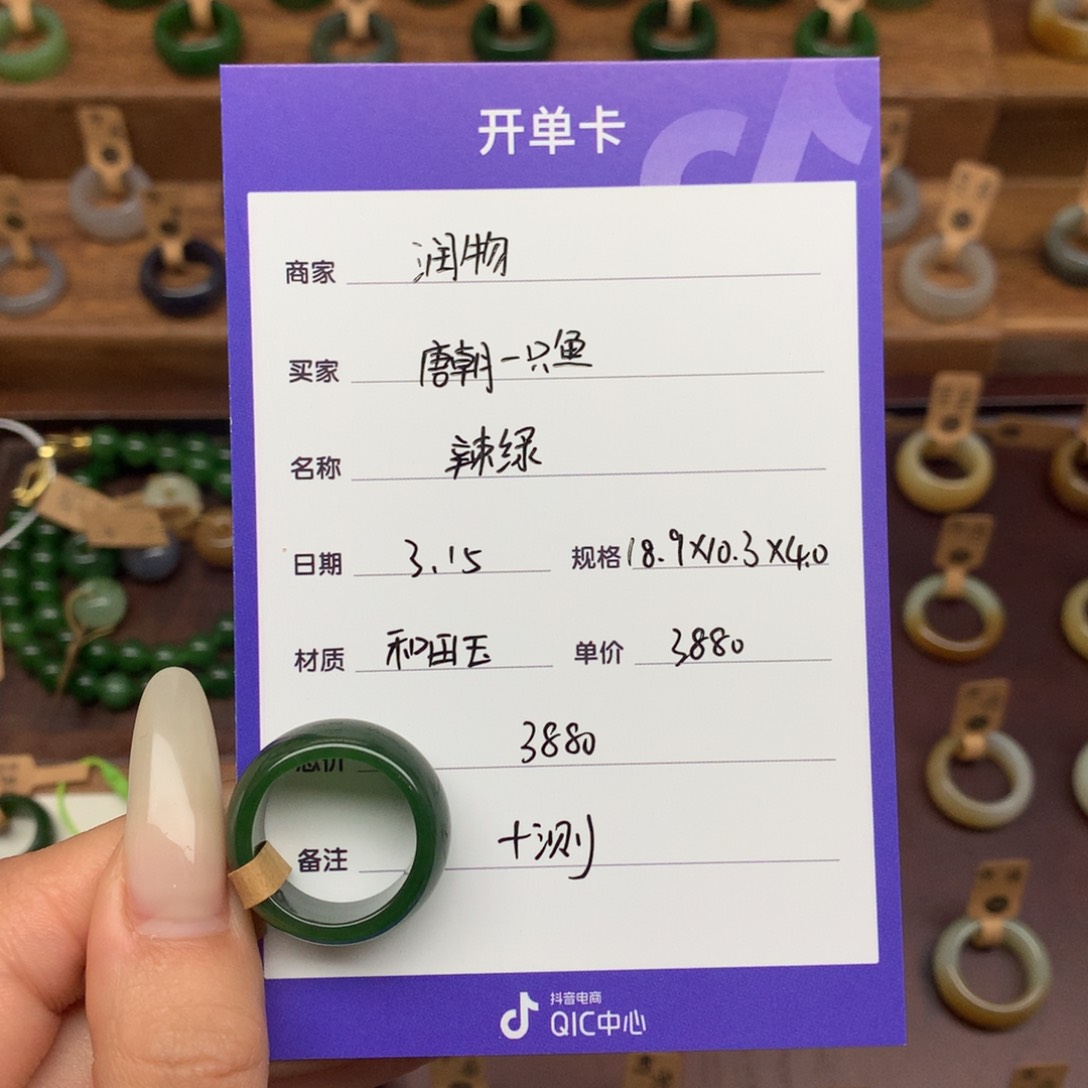 开单卡
商家 润物
买家 唐朝一只鱼
名称 辣绿
日期 3.15 规格 18.9X10.3X4.0
材质 和田玉 单价 3880
总价 3880
备注 十测
抖音电商
QIC中心